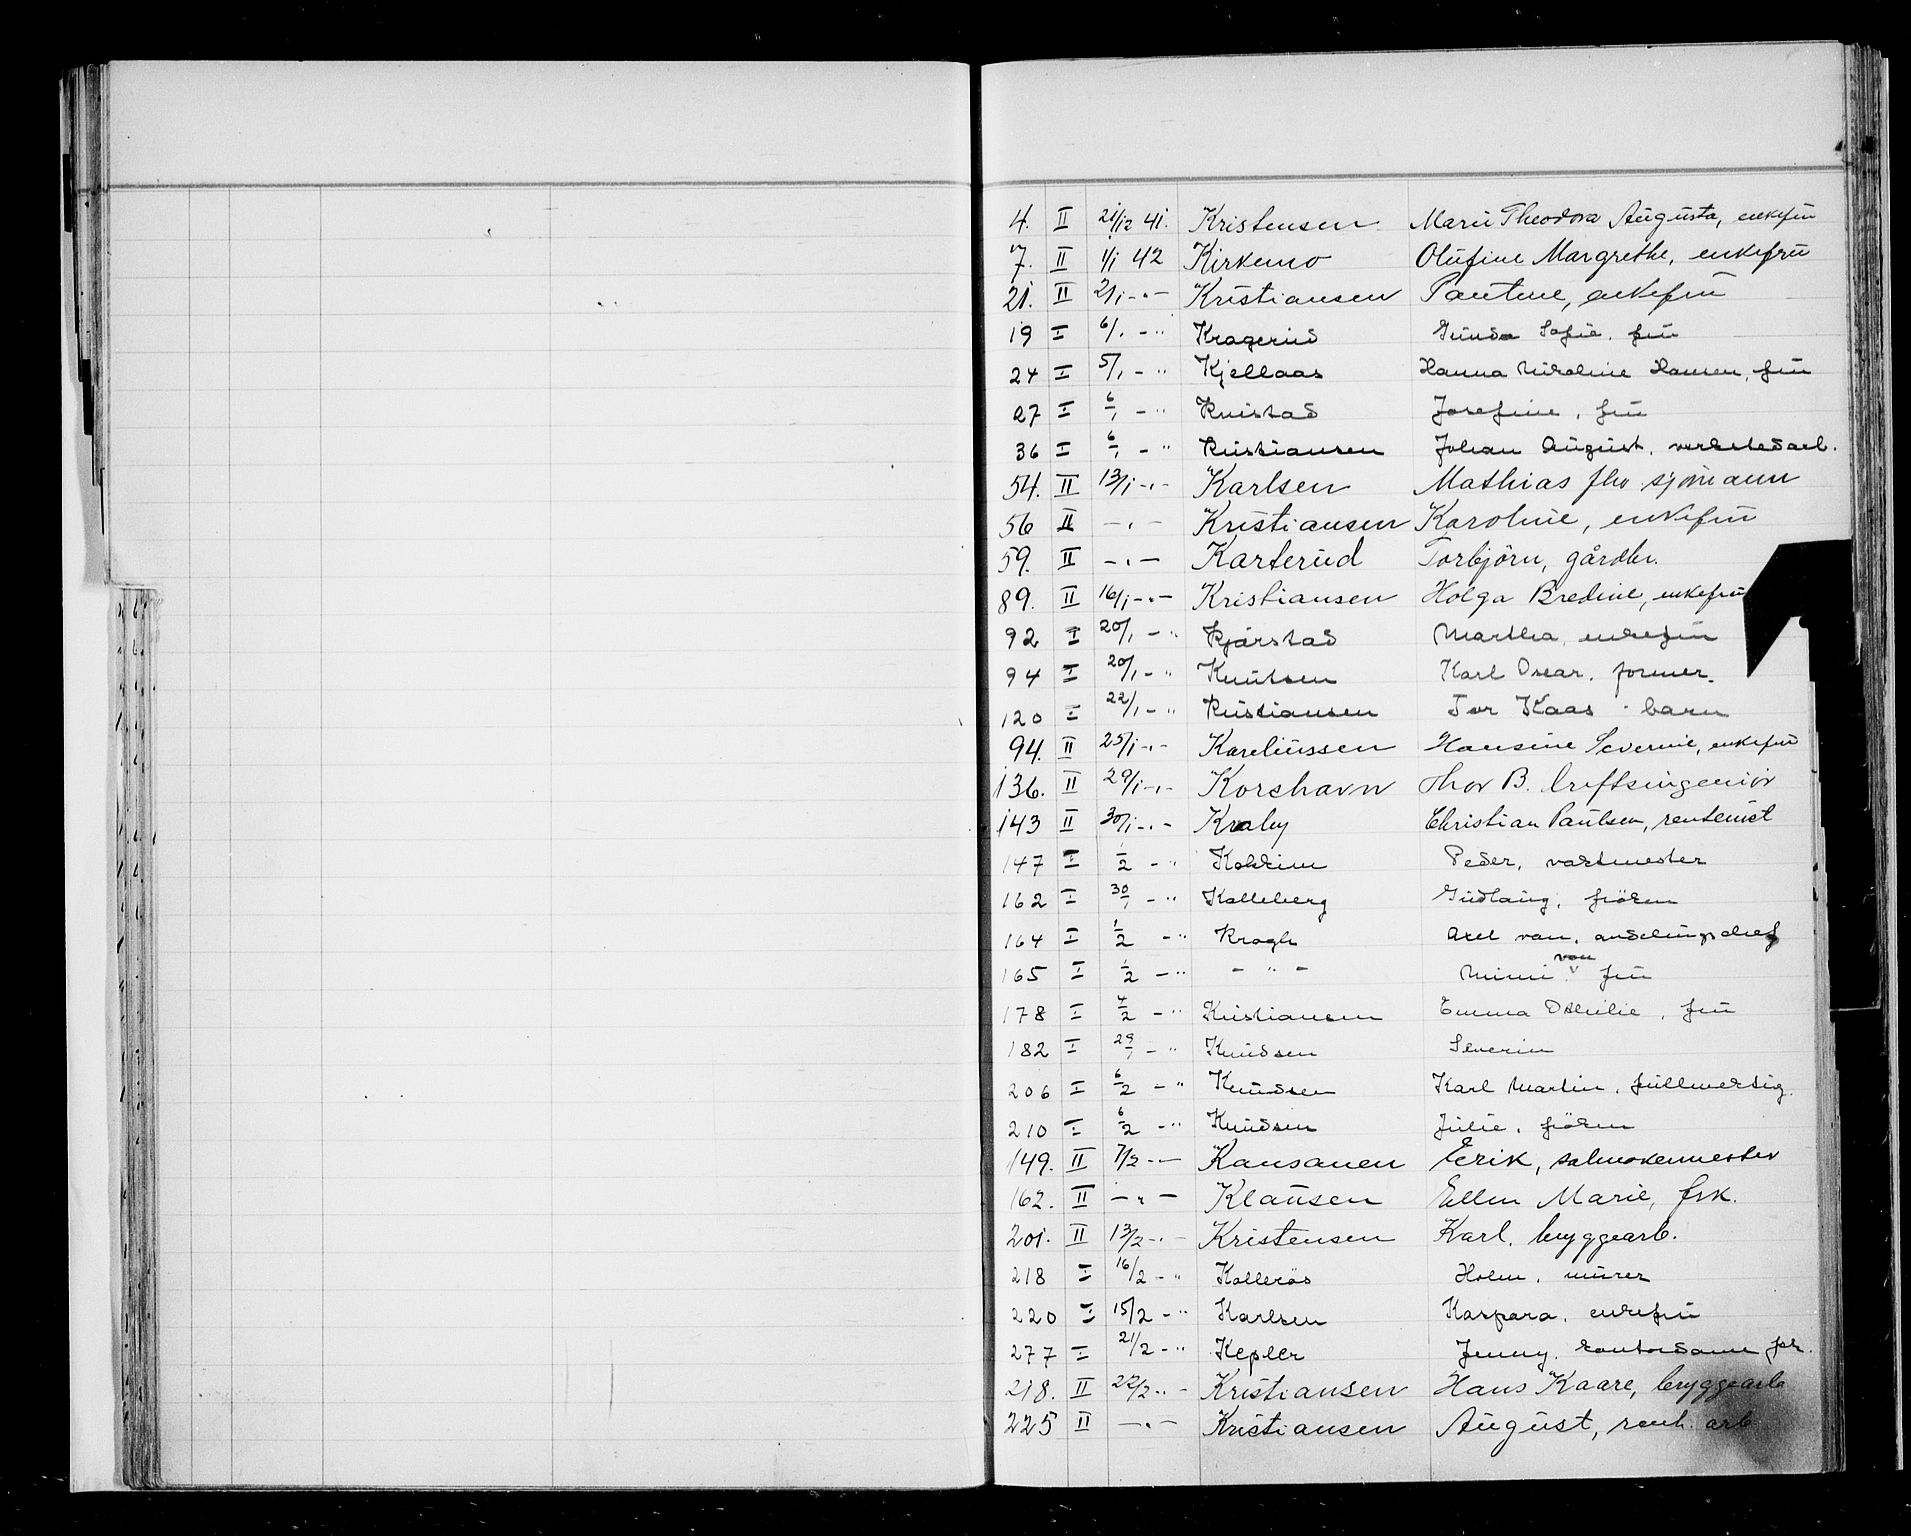 4. II 21/12 41. Kristensen Marie Theodora Augusta, enkefru
7. II 1/1 42 Kirkemo Olufine Margrethe, enkefru
21. II 2/1 -"- Kristiansen Pauline, enkefru
19 I 6/1 - " Kragerud Gunda Sofie, fru
24 I 5/1 - " Kjellaas Hanna Nikoline Hansen, fru
27 I 6/1 - " Knistad Josefine, fru
36 I 6/1 - " Kristiansen Johan August, verkstedarb.
54. II 13/1 -"- Karlsen Mathias fhv. sjömann
56 II -"- Kristiansen Karoline, enkefru
59. II -"- Karterud Torbjörn, gårdbr.
89. II 16/1 -"- Kristiansen Holga Bredine, enkefru
92 I 20/1 - " Kjærstad Martha, enkefru
94 I 20/1 - " Knutsen Karl Oscar, former.
120 I 22/1 - " Kristiansen Tor Kaas - barn
94. II 25/1 -"- Kareliussen Hansine Severine, enkefru
136. II 29/1 -"- Korshavn Thor B. driftsingeniör
143 II 30/1 -"- Kraby Christian Paulsen, rentenist
147 I 1/2 - " Kolkinn Peder, vaktmester
162 I 30/1 - " Kolleberg Gudlaug, fröken
164 I 1/2 - " Krogh Axel von, avdelingschef
165 I 1/2 - " - " - Mimi von fru
178 I 4/2 - " Kristiansen Emma Othilie, fru
182 I 29/1 - " Knudsen Severin
206 I 6/2 - " Knudsen Karl Martin, fullmektig.
210 I 6/2 - " Knudsen Julie, fröken
149. II 7/2 -"- Kansanen Erik, salmakermester
162. II -"- Klausen Ellen Marie, frk.
201. II 13/2 -"- Kristensen Karl, bryggearb.
218 I 16/2 - " Kollerös Holm, murer
220 I 15/2 - " Karlsen Kaspara, enkefru
277 I 21/2 - " Kepler Jenny, kontordame frk.
218. II 22/2 " - Kristiansen Hans Kaare, bryggearb
225 II -"- Kristiansen August, renh. arb